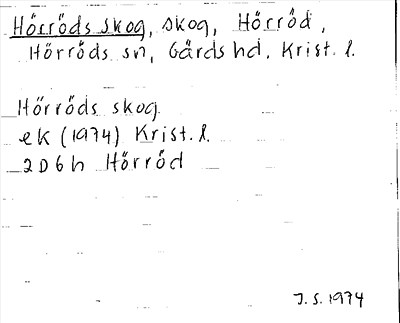 Hörröds skog, skog, Hörröd,
Hörröds sn, Gärds hd, Krist. l.
Hörröds skog
ek (1974) Krist. l.
2D6h Hörröd
J. S. 1974